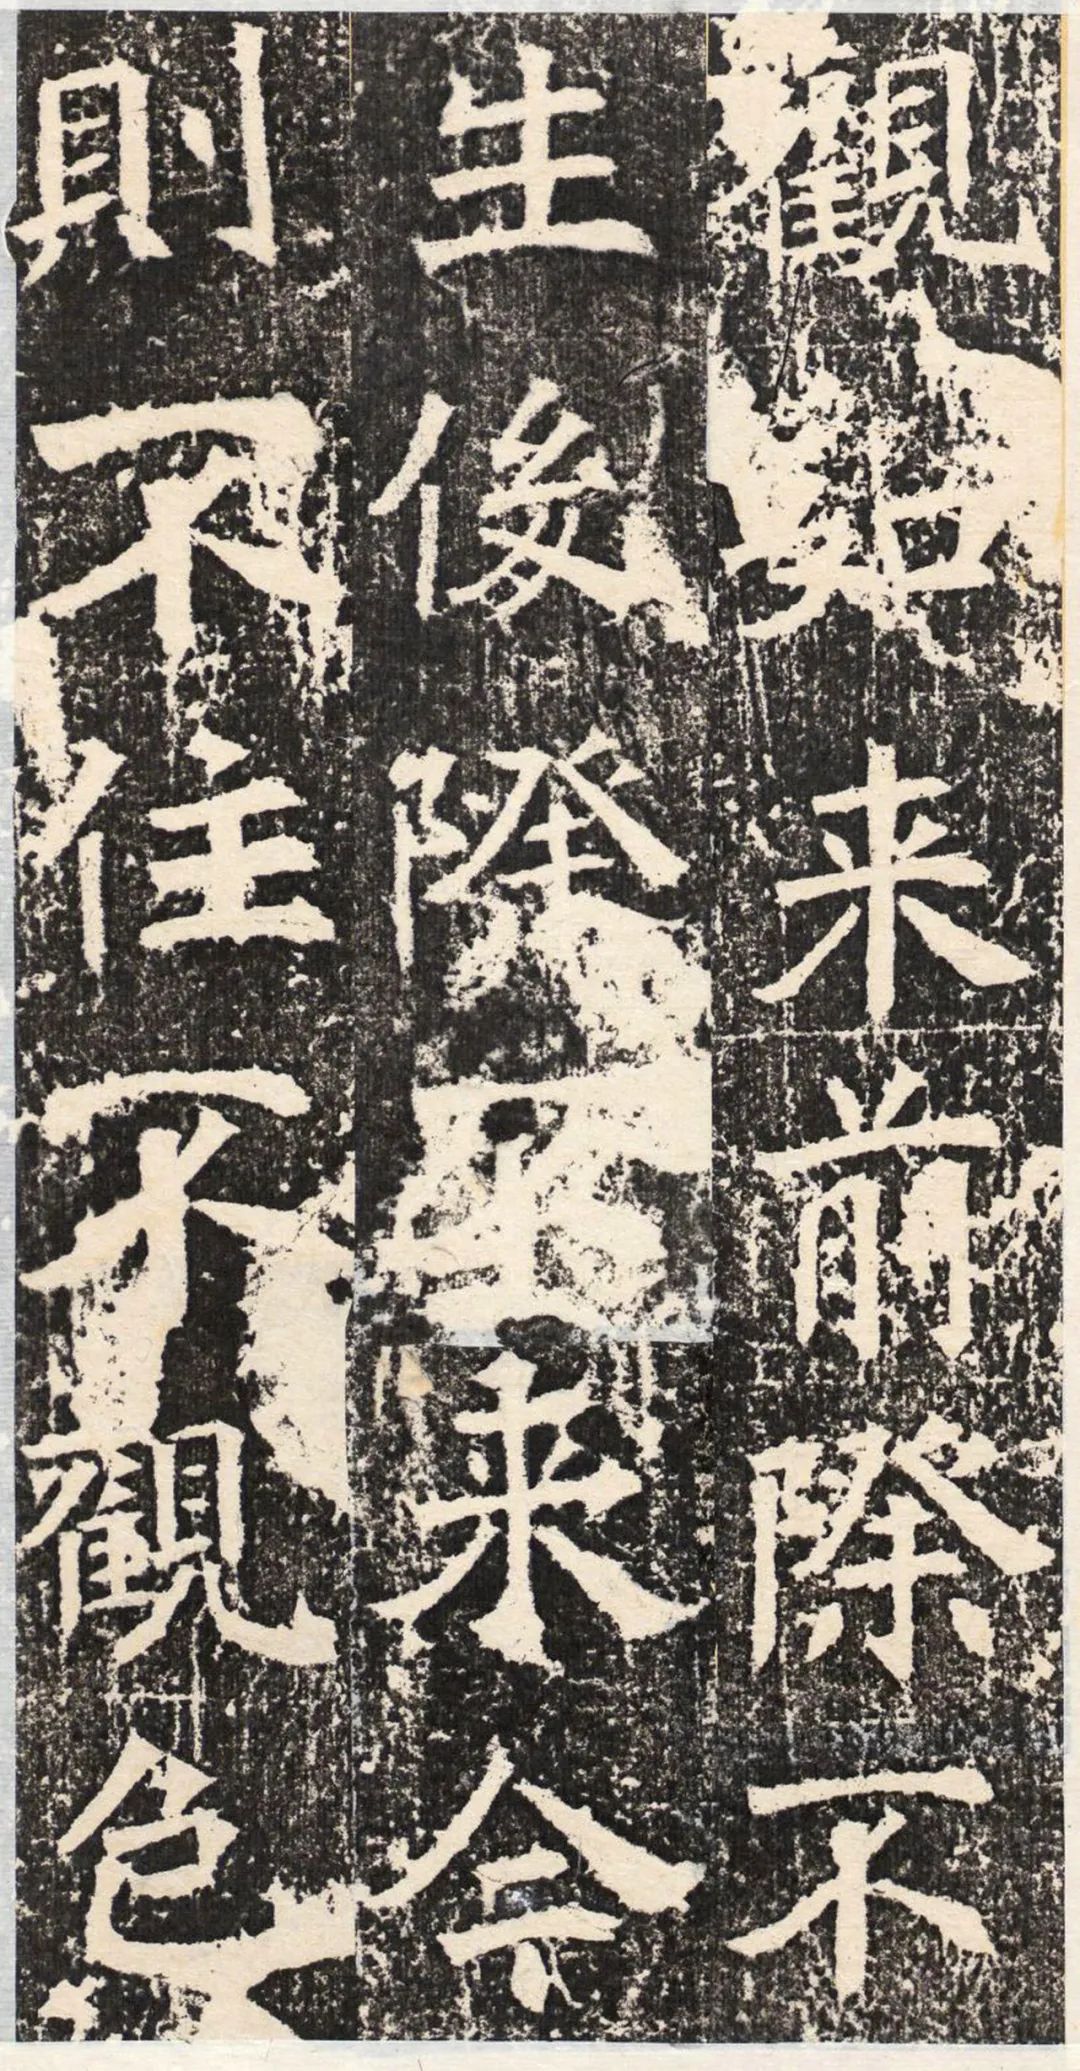 觀如来前際不
生後際不来今
則不住不觀色